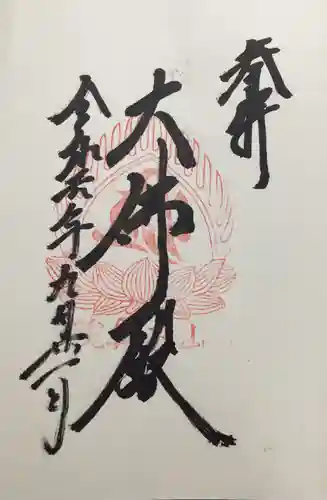 奉拝
大仏殿
令和六年九月廿一日